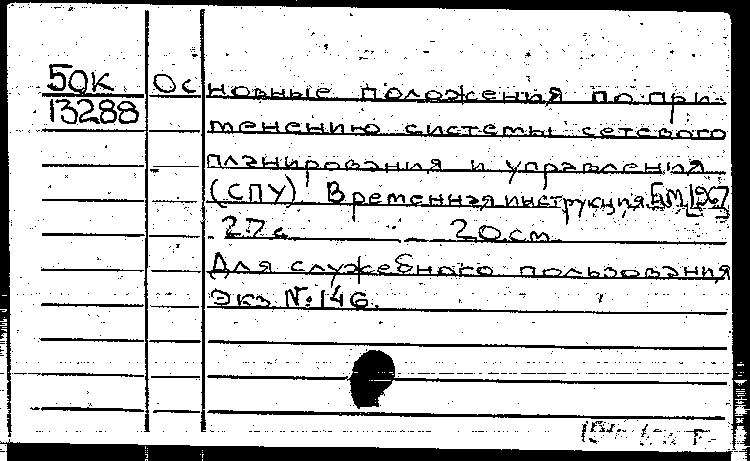 50к Основные положения по при-
13288
менению системы сетевого
планирования и управления
(СПУ). Временная инструкция. БМ, 1967
27с. 20см.
Для служебного пользования
Экз. №146.